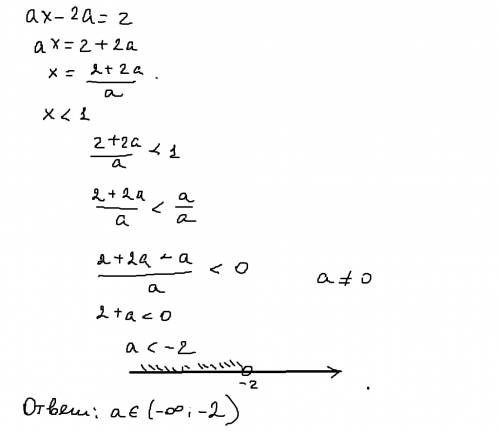 ax - 2a = 2
ax = 2 + 2a
x = \frac{2 + 2a}{a} .
x < 1
\frac{2 + 2a}{a} < 1
\frac{2 + 2a}{a} < \frac{a}{a}
\frac{2 + 2a - a}{a} < 0     a ≠ 0
2 + a < 0
a < -2
-2
Ответ: a ∈ (-∞; -2)